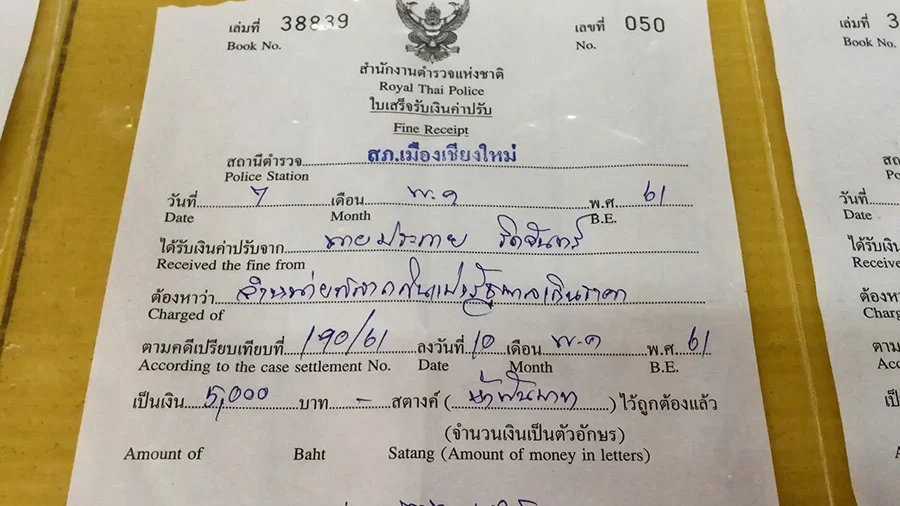 เล่มที่ 38839 เลขที่ 050
Book No. No.
สำนักงานตำรวจแห่งชาติ
Royal Thai Police
ใบเสร็จรับเงินค่าปรับ
Fine Receipt
สถานีตำรวจ สภ.เมืองเชียงใหม่
Police Station
วันที่ 7 เดือน พ.ค พ.ศ 61
Date Month B.E.
ได้รับเงินค่าปรับจาก นายประกาย
Received the fine from
ต้องหาว่า จำหน่ายสลากกินแบ่งรัฐบาลเกินราคา
Charged of
ตามคดีเปรียบเทียบที่ 190/61 ลงวันที่ 10 เดือน พ.ค พ.ศ 61
According to the case settlement No. Date Month B.E.
เป็นเงิน 5,000 บาท - สตางค์ (ห้าพันบาท) ไว้ถูกต้องแล้ว
(จำนวนเงินเป็นตัวอักษร)
Amount of Baht Satang (Amount of money in letters)
เล่มที่ 3
Book No.
วันที่
Date
ได้รับเงิน
ต้องหา
ตามคดี